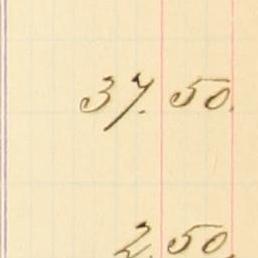 37.50.
2.50.